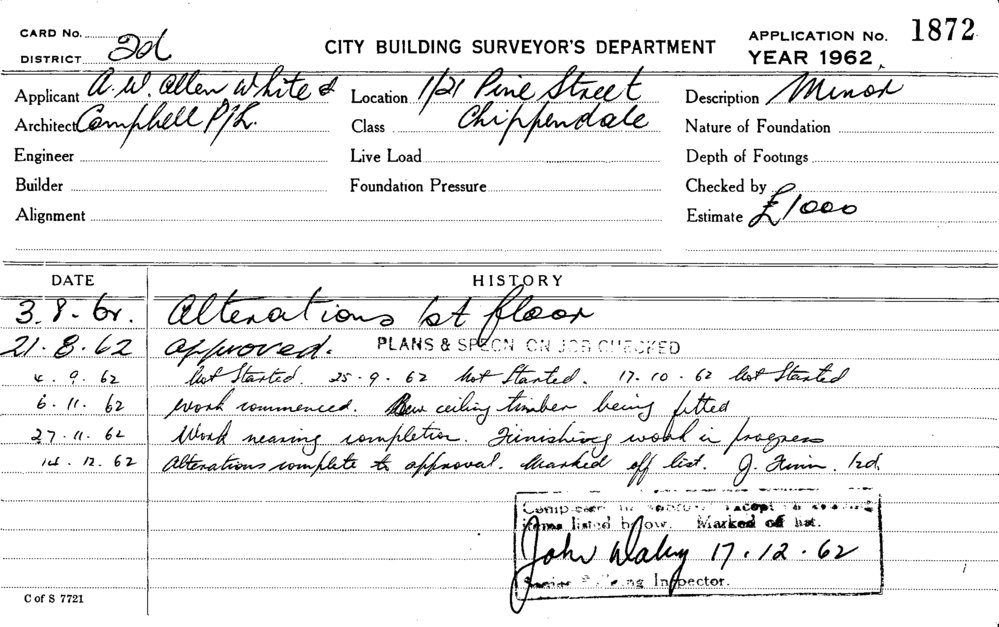 CARD No.
DISTRICT 2d
CITY BUILDING SURVEYOR'S DEPARTMENT
APPLICATION No. 1872
YEAR 1962
Applicant A. W. Allen White &
Location 1/21 Pine Street
Description Minor
Architect Campbell P/L.
Class Chippendale
Nature of Foundation
Engineer
Live Load
Depth of Footings
Builder
Foundation Pressure
Checked by
Alignment
Estimate £1000
DATE HISTORY
3.8.62. Alterations 1st floor
21.8.62 approved. PLANS & SPECN ON JOB CHECKED
4.9.62 Not Started. 25.9.62 Not Started. 17.10.62 Not Started
6.11.62 Work commenced. New ceiling timber being fitted
27.11.62 Work nearing completion. Finishing work in progress
14.12.62 Alterations complete to approval. Marked off list. J.
items listed below. Marked off list.
John 17.12.62
Senior Building Inspector.
C of S 7721